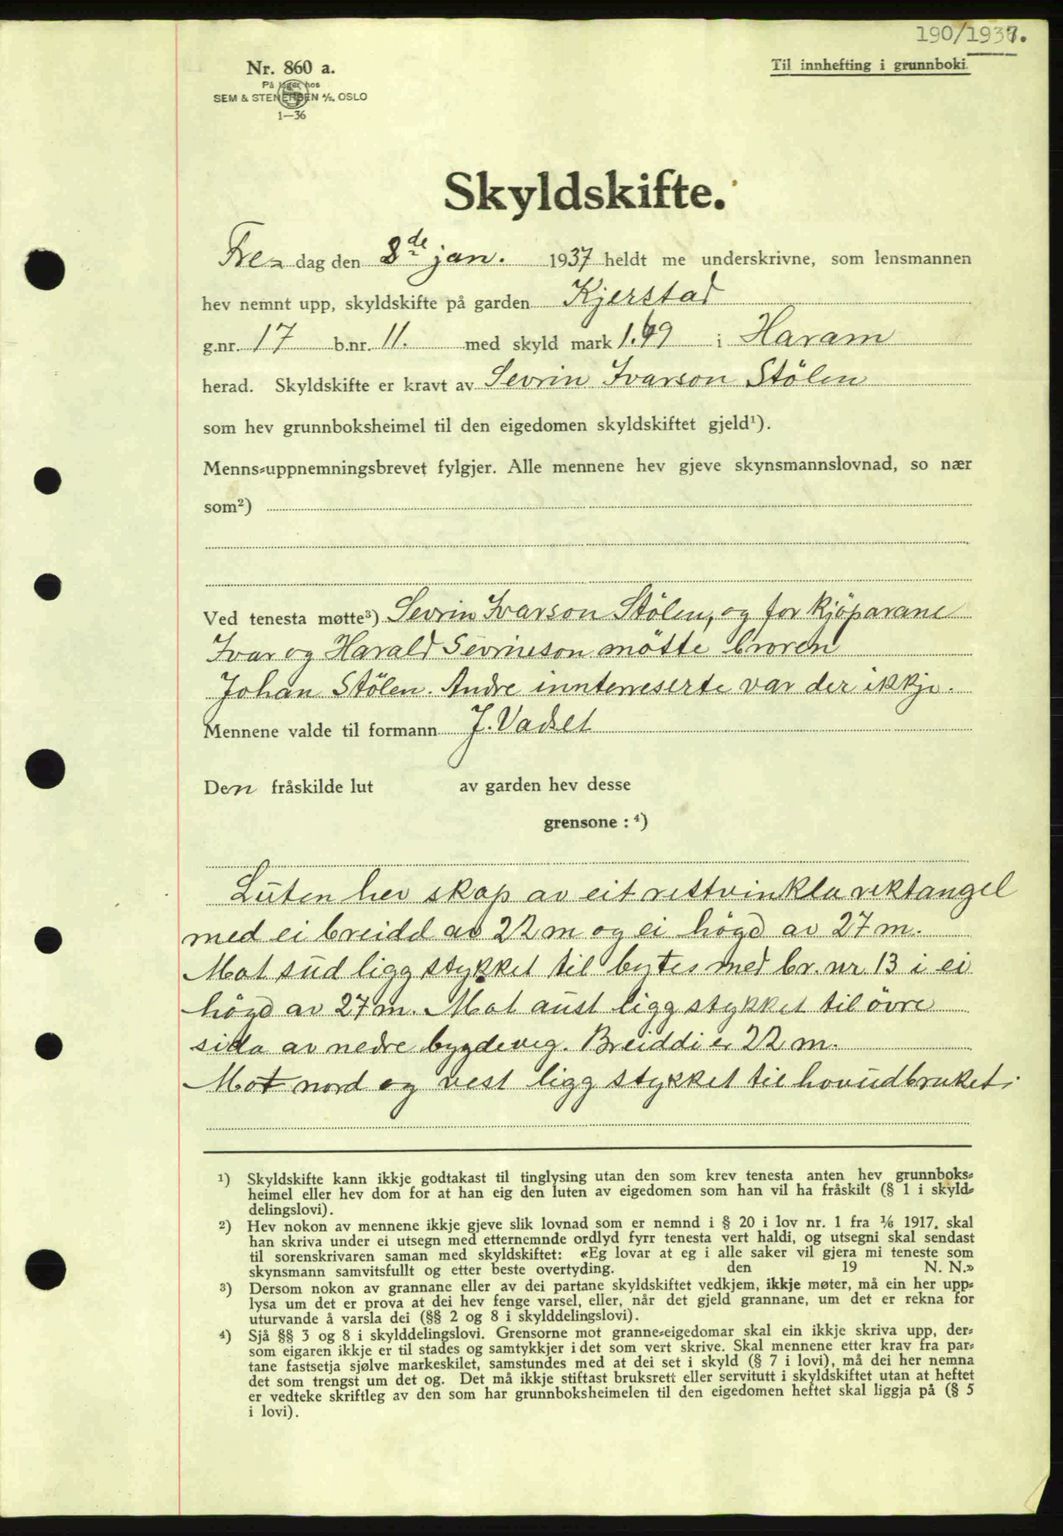 190/1937.
Nr. 860 a.
Til innhefting i grunnboki.
På lager hos
SEM & STENERSEN A/S, OSLO
1—36
Skyldskifte.
Fre= dag den 8de jan. 1937 heldt me underskrivne, som lensmannen
hev nemnt upp, skyldskifte på garden Kjerstad
g.nr. 17 b.nr. 11. med skyld mark 1.49 i Haram
herad. Skyldskifte er kravt av Sevrin Ivarson Stölen
som hev grunnboksheimel til den eigedomen skyldskiftet gjeld¹).
Menns=uppnemningsbrevet fylgjer. Alle mennene hev gjeve skynsmannslovnad, so nær
som²)
Ved tenesta møtte³) Sevrin Ivarson Stölen, og for kjöparane
Ivar og Harald Sevrineson mötte broren
Johan Stölen. Andre innterreserte var der ikkje.
Mennene valde til formann J. Vadset
Den fråskilde lut av garden hev desse
grensone : ⁴)
Luten hev skap av eit rettvinkla rektangel
med ei breidd av 22 m og ei högd av 27 m.
Mot sud ligg stykket til bytes med br. nr 13 i ei
högd av 27 m. Mot aust ligg stykket til övre
sida av nedre bygdeveg. Breiddi er 22 m.
Mot nord og vest ligg stykket til hovudbruket.
¹) Skyldskifte kann ikkje godtakast til tinglysing utan den som krev tenesta anten hev grunnboks=
heimel eller hev dom for at han eig den luten av eigedomen som han vil ha fråskilt (§ 1 i skyld=
delingslovi).
²) Hev nokon av mennene ikkje gjeve slik lovnad som er nemnd i § 20 i lov nr. 1 fra 1/6 1917, skal
han skriva under ei utsegn med etternemnde ordlyd fyrr tenesta vert haldi, og utsegni skal sendast
til sorenskrivaren saman med skyldskiftet: «Eg lovar at eg i alle saker vil gjera mi teneste som
skynsmann samvitsfullt og etter beste overtyding. den 19 N. N.»
³) Dersom nokon av grannane eller av dei partane skyldskiftet vedkjem, ikkje møter, må ein her upp=
lysa um det er prova at dei hev fenge varsel, eller, når det gjeld grannane, um det er rekna for
uturvande å varsla dei (§§ 2 og 8 i skylddelingslovi).
⁴) Sjå §§ 3 og 8 i skylddelingslovi. Grensorne mot granne=eigedomar skal ein ikkje skriva upp, der=
som eigaren ikkje er til stades og samtykkjer i det som vert skrive. Skal mennene etter krav fra par=
tane fastsetja sjølve markeskilet, samstundes med at dei set i skyld (§ 7 i lovi), må dei her nemna
det som trengst um det og. Det må ikkje stiftast bruksrett eller servitutt i skyldskiftet utan at heftet
er vedteke skriftleg av den som har grunnboksheimelen til den eigedomen heftet skal liggja på (§ 5
i lovi).